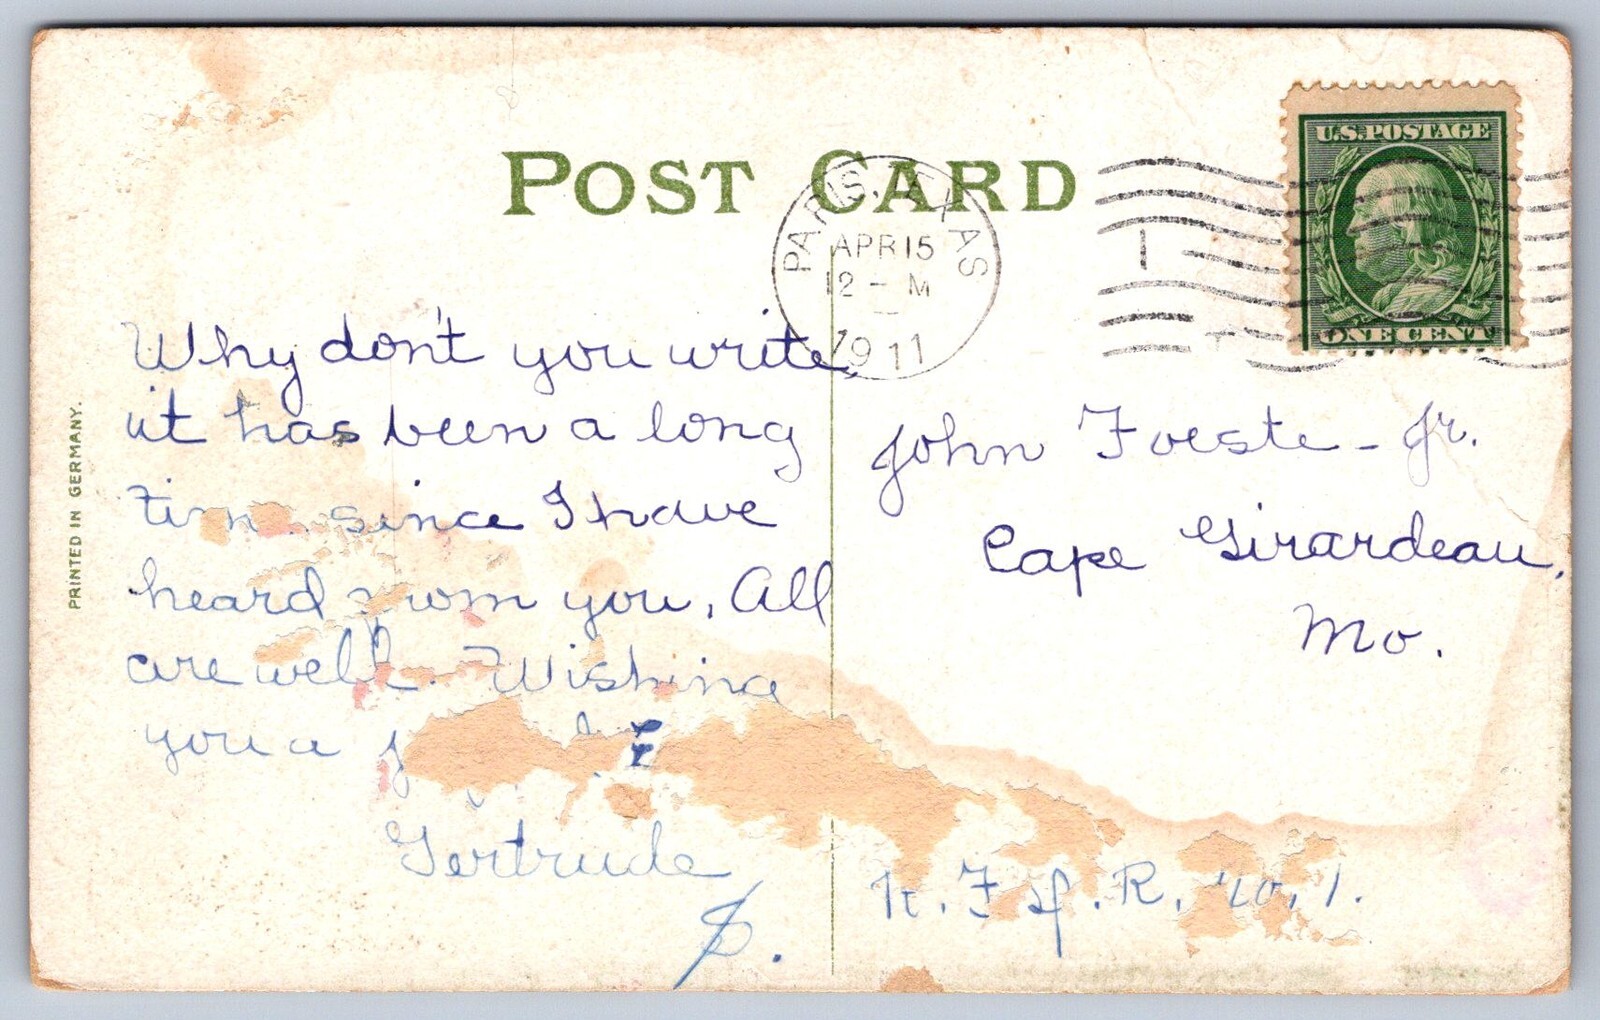 POST CARD
PARIS, TEXAS
APR 15
12 - M
1911
U.S. POSTAGE
ONE CENT
PRINTED IN GERMANY.
Why don't you write,
it has been a long
since I have
heard from you. All
are well. Wishing
you a
Gertrude
S.
John Foeste - Jr.
Cape Girardeau,
Mo.
R. No. 1.